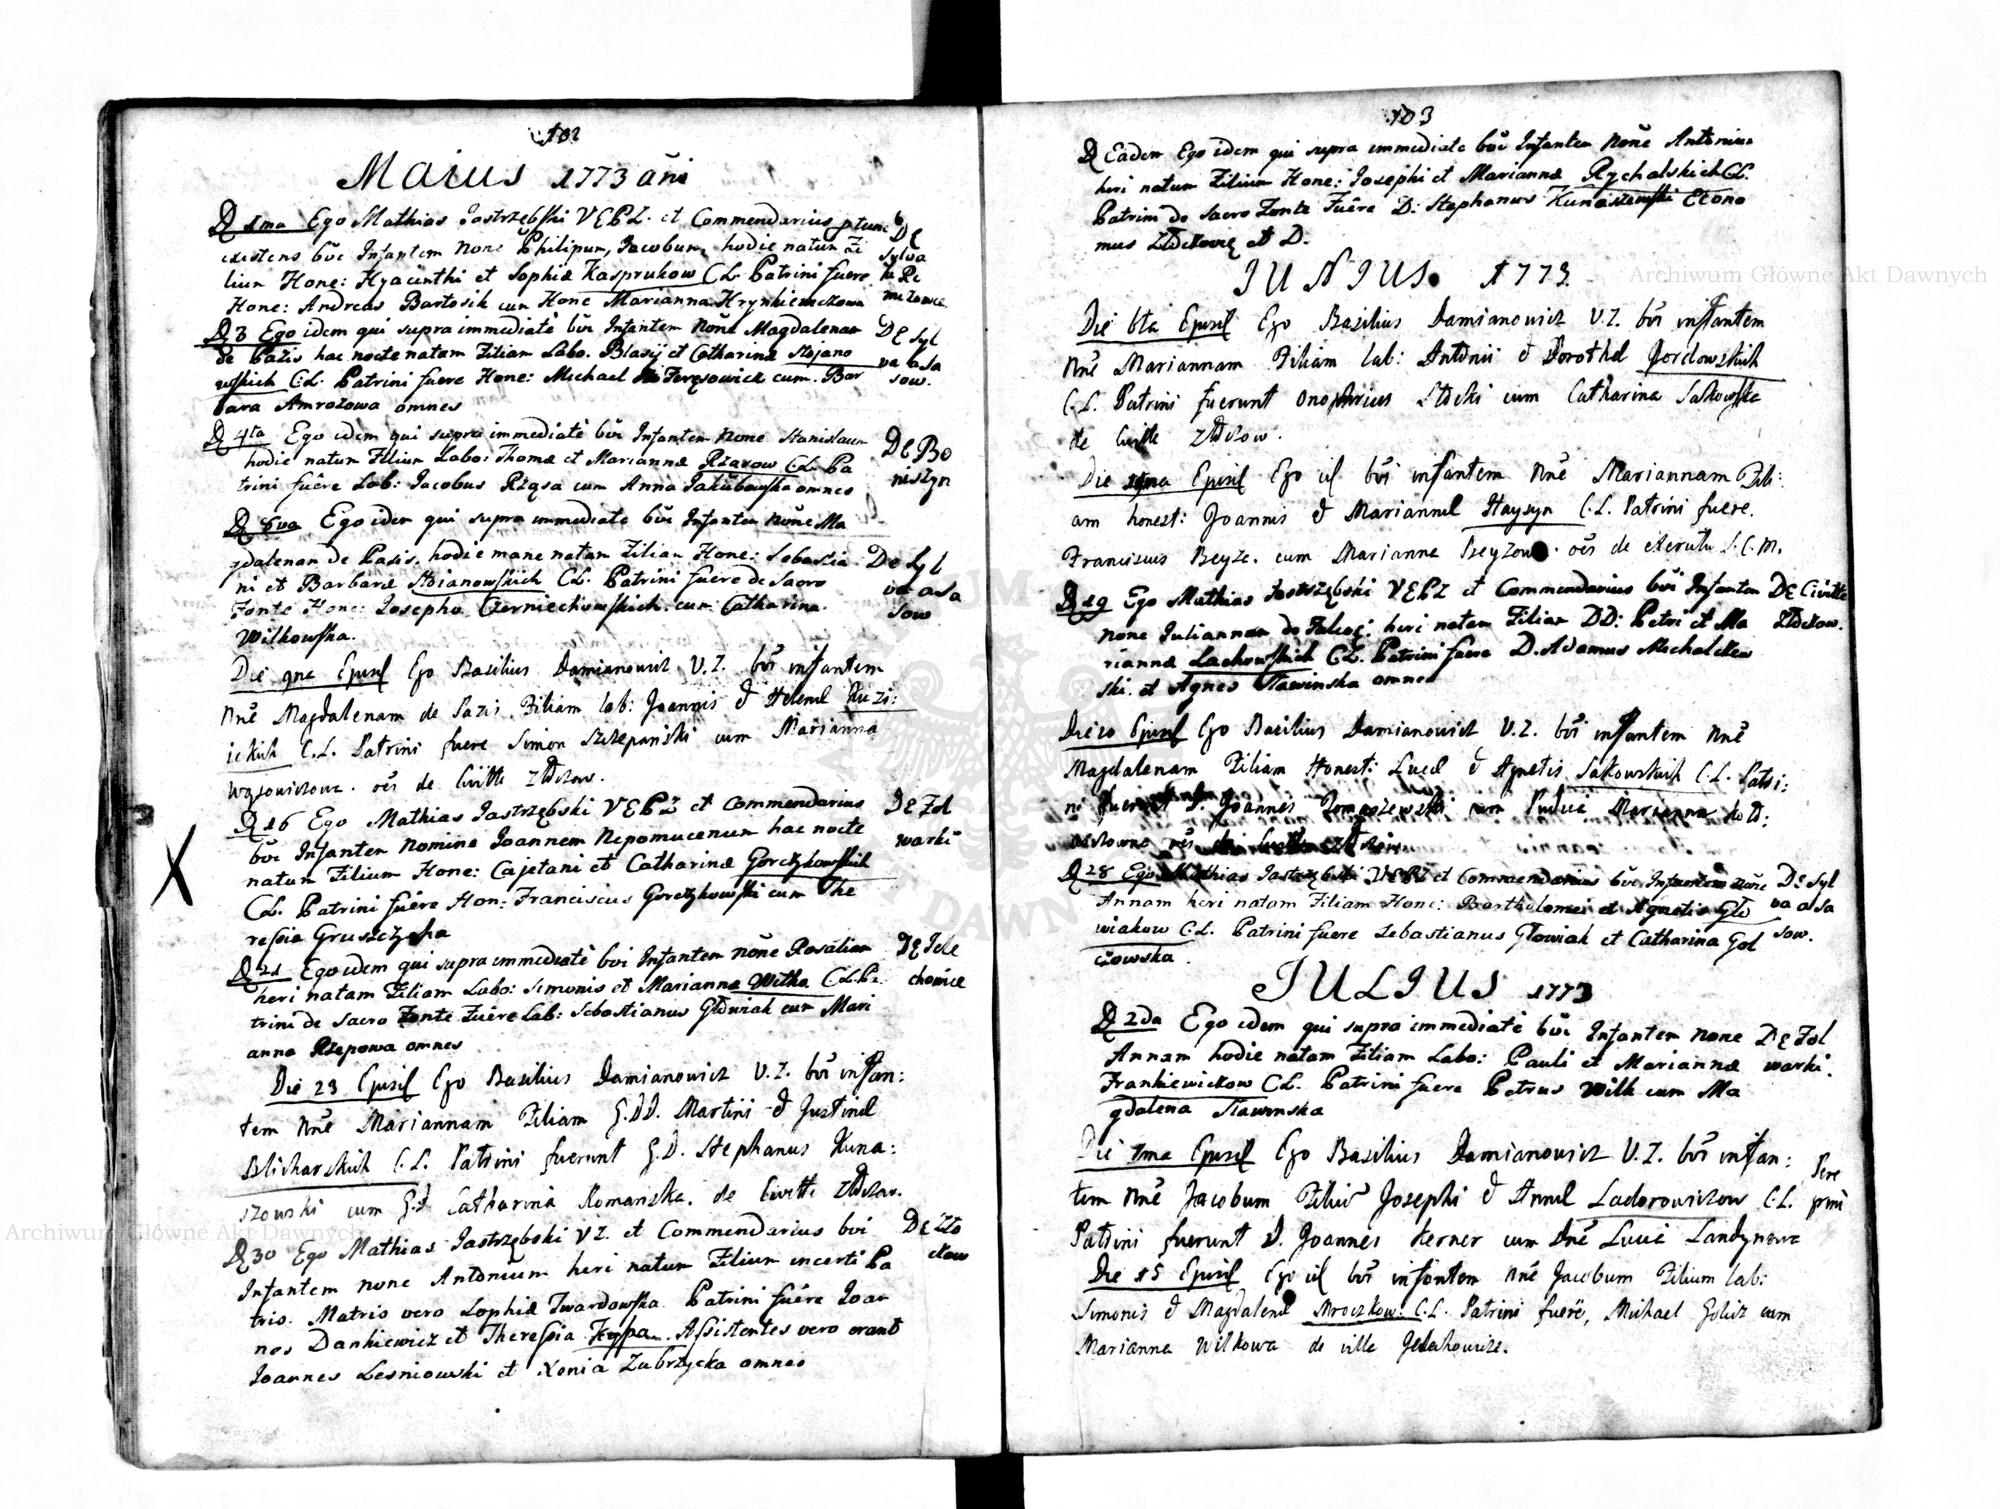 102
Maius 1773 añi
D 1ma Ego Mathias Jastrzębski VEPZ. et Commendarius ptunc
existens bõi Infantem None Philipum, Jacobum, hodie natum Fi
lium Hone: Hyacinthi et Sophiæ Kasprukow CL. Patrini fuere
Hone: Andreas Bartosik cum Hone Marianna Hrynkiewiczowa
D 3 Ego idem qui supra immediatè bõi Infantem Nõne Magdalenam
de Pazis hac nocte natam Filiam Labo. Blasij et Catharinæ Stojano
wskich CL. Patrini fuere Hone: Michael Feręsowicz cum Bar
bara Amrozowa omnes
De Syl
va asa
sow.
D 4ta Ego idem qui supra immediatè bõi Infantem None Stanislaum
hodie natum Filium Labo: Thomæ et Mariannæ Rżaxow CL. Pa
trini fuêre Lab: Jacobus Rżąsa cum Anna Jakubowska omnes
De Bo
niszyn
D Ego idem qui supra immediatè bõi Infantem Nõne Ma
gdalenam de Pasis. hodie mane natam Filiam Hone: Sebastia
ni et Barbaræ Stoianowskich CL. Patrini fuêre de Sacro
Fonte Hone: Josepho Czerniechowskich. cum Catharina
Wilkowska.
De Syl
va asa
sow
Die 9na Ejusd Ego Basilius Damianowicz V.Z. bõi infantem
Nnẽ Magdalenam de Pazis. Filiam lab: Joannis & Helenæ Kuzi:
ickich C.L. Patrini fuere Simon Szczepański cum Marianna
Wąsowiczowa. oẽs de Civitte Złoczow.
D 16 Ego Mathias Jastrzębski VEPZ et Commendarius
bõi Infantem Nomine Joannem Nepomucenum hac nocte
natum Filium Hone: Cajetani et Catharinæ Gorczykowskich
CL. Patrini fuêre Hon: Franciscus Gorczykowski cum The
ressia Gruszczycha
De Fol
warki
D 21 Ego idem qui supra immediatè boi Infantem Nõne Rosaliam
heri natam Filiam Labo: Simonis et Marianna Witka CL. Pa
trini de Sacro Fonte Fuêre Lab: Sebastianus Głowiak cum Mari
anna Rzepowa omnes
De Jele
chowice
Die 23 Ejusd Ego Basilius Damianowicz V.Z. bõi infan:
tem Nnẽ Mariannam Filiam G.DD. Martini & Justinæ
Blicharskich C.L. Patrini fuerunt G.D. Stephanus Kuna:
szowski cum G.D. Catharina Romanska. de Civitte Złoczow.
D 30 Ego Mathias Jastrzębski VZ. et Commendarius boi
Infantem None Antonium heri natum Filium incerti Pa
tris. Matris vero Sophiæ Twardowska Patrini fuêre Joan
nes Dankiewicz et Theressia Assistentes vero erant
Joannes Lesniowski et Xonia Zubrzycka omnes
De Zło
czow
103
D Eadem Ego idem qui supra immediate boi Infantem Nõne Antonium
heri natum Filium Hone: Josephi et Mariannæ Rychalskich CL.
Patrini de Sacro Fonte Fuêre D: Stephanus Kunaszewski Econo
mus et D.
JUNIUS. 1773
Die 6ta Ejusd Ego Basilius Damianowicz V.Z. bõi infantem
Nnẽ Mariannam Filiam lab: Antonii & Dorotheæ Gordowskich
C.L. Patrini fuerunt Onophrius cum Catharina Sakowska
de Civitte Złoczow.
Die Ejusd Ego id bõi infantem Nnẽ Mariannam Fili:
am honest: Joannis & Mariannæ Haysyn C.L. Patrini fuere.
Franciscus Beyze. cum Marianna oẽs de S.C.M.
D 19 Ego Mathias Jastrzębski VEPZ et Commendarius bõi Infantem
None Juliannam de Falcoj. heri natam Filiam DD: Petri et Ma
riannæ Lachowskich CL. Patrini fuêre D. Adamus Michalczew
ski. et Agnes Sławinska omnes
De Civitte
Złoczow.
Die 20 Ejusd Ego Basilius Damianowicz V.Z. bõi infantem Nnẽ
Magdalenam Filiam Honest: Lucæ & Agnetis Sakowskich C.L. Patri:
ni fuerunt D. Joannes Tomaszewski cum Marianna
D 28 Ego Mathias Jastrzębski VEPZ et Commendarius bõi Infantem Nõne
Annam heri natam Filiam Hone: Bartholomei et Agnetis Gło
wiakow CL. Patrini fuere Sebastianus Głowiak et Catharina Goł
czowska.
De Syl
va asa
sow.
JULIUS 1773
D 2da Ego idem qui supra immediatè bõi Infantem None
Annam hodie natam Filiam Labo: Pauli et Mariannæ
Frankiewiczow CL. Patrini fuere Petrus Wilk cum Ma
gdalena Sławinska
De Fol
warki.
Die 7ma Ejusd Ego Basilius Damianowicz V.Z. bõi infan:
tem Nnẽ Jacobum Filium Josephi & Annæ Ladorowiczow C.L.
Patrini fuerunt D. Joannes Kerner cum Dnẽ Lucia Landynowa
Die 15 Ejusd Ego id bõi infantem Nnẽ Jacobum Filium lab:
Simonis & Magdalenæ Mroczkow: C.L. Patrini fuere, Michael Golicz cum
Marianna Wilkowa de ville Jelechowice.
Archiwum Główne Akt Dawnych
Archiwum Główne Akt Dawnych